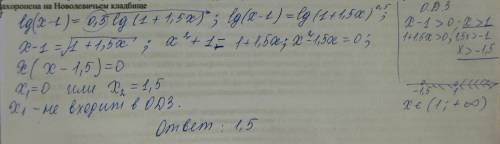 дахоронена на Новодевичьем кладбище
lg(x-1) = 0,5 lg (1+1,5x); lg(x-1) = lg(1+1,5x)^0,5;
x-1 = √(1+1,5x); x²+1- 1+1,5x; x²-1,5x=0;
x( x-1,5)=0
x₁=0 или x₂=1,5
x₁ - не входит в ОДЗ.
Ответ: 1,5
ОДЗ
x-1>0; x>1
1+1,5x>0; 1,5x>-1
x>-1,5
-1,5 1
x∈(1;+∞)